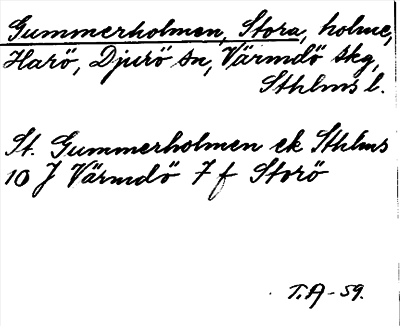 Gummerholmen, Stora, holme,
Harö, Djurö sn, Värmdö skg,
Sthlms l.
St. Gummerholmen ek Sthlms
10 J Värmdö 7 f Storö
T.A-59.